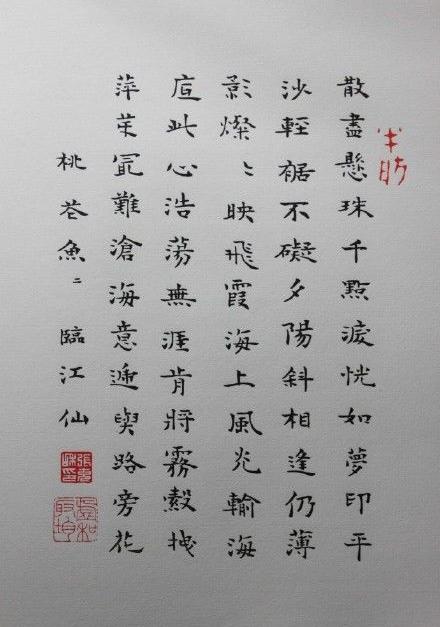 散盡懸珠千點淚恍如夢印平
沙輕裾不礙夕陽斜相逢仍薄
影燦〻映飛霞海上風光輸海
底此心浩蕩無涯肯將霧縠拽
萍芽冣難滄海意遞與路旁花
桃花魚〻 臨江仙